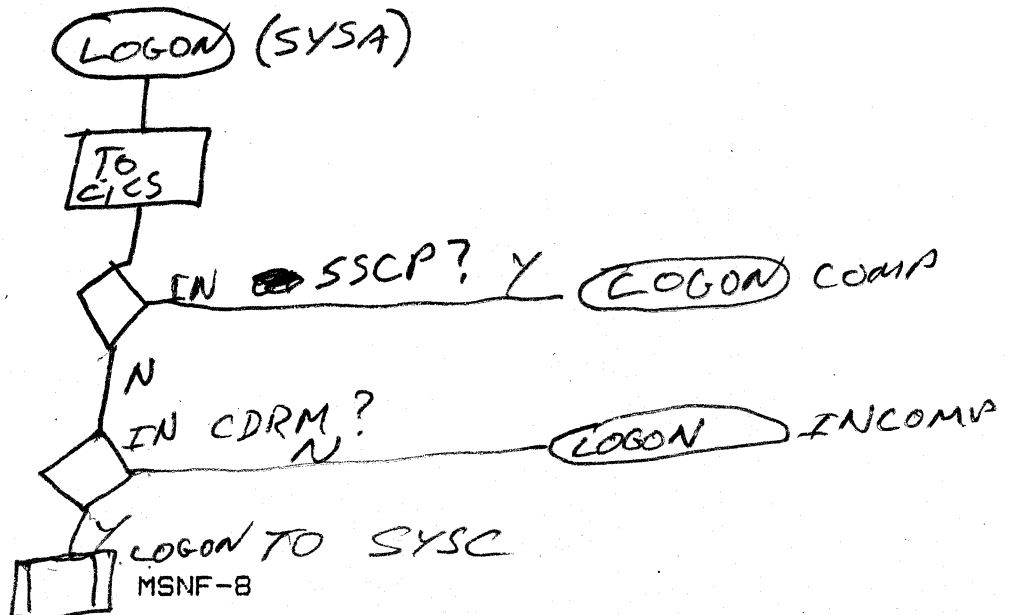 LOGON (SYSA)
TO
CICS
IN SSCP? Y LOGON COMP
N
IN CDRM?
N LOGON INCOMP
Y LOGON TO SYSC
MSNF-8